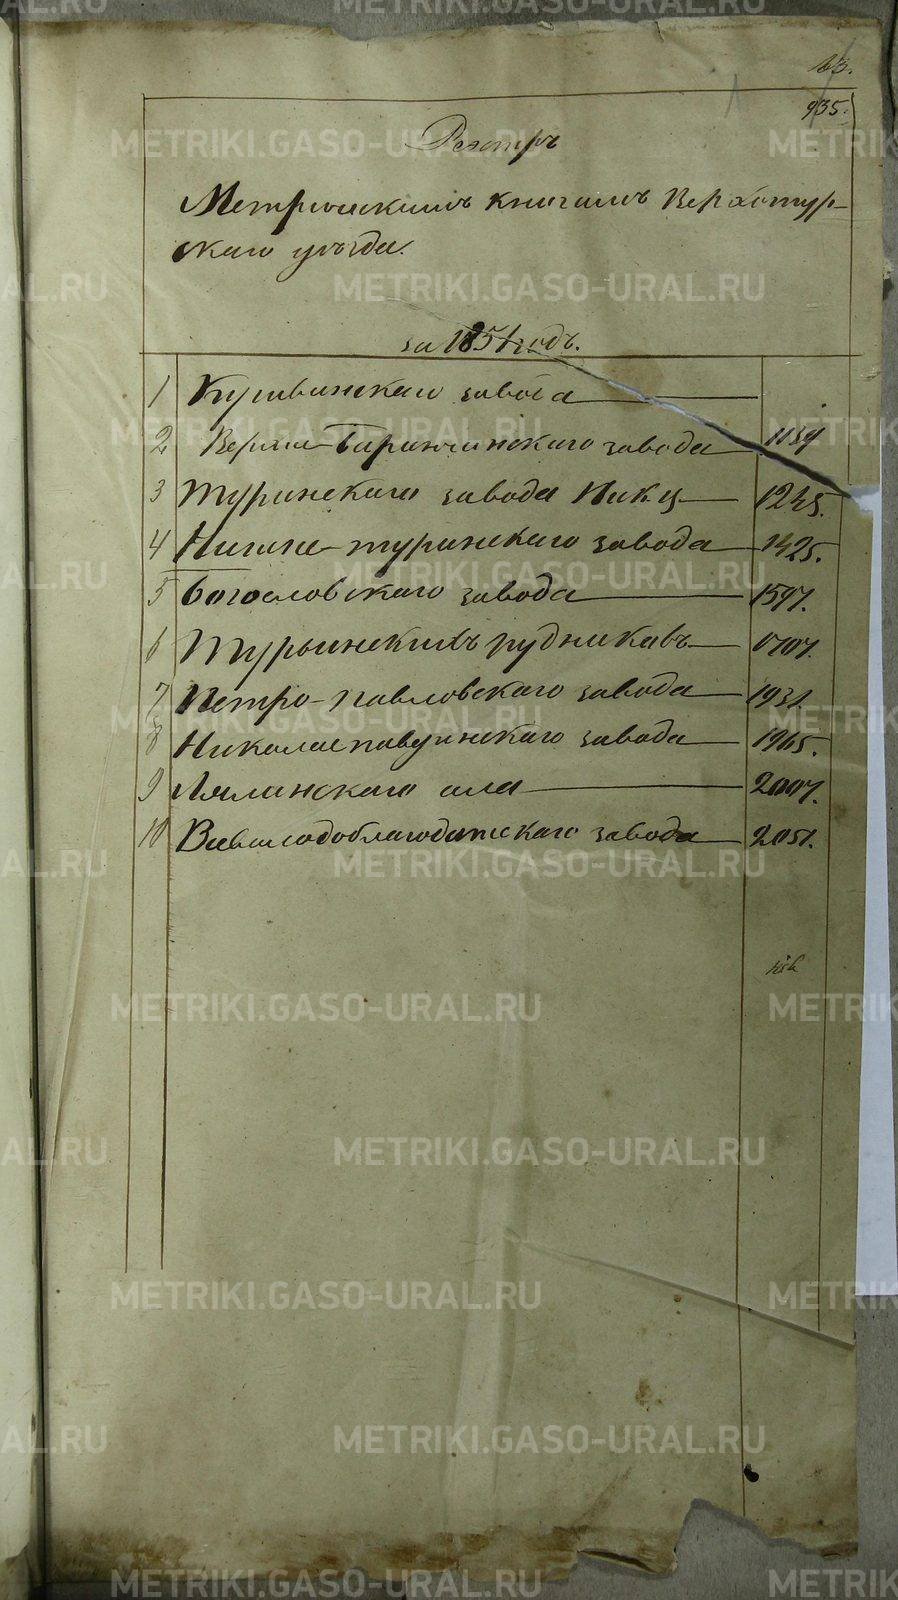 935.
Реэстръ
Метрическимъ книгамъ Верхотур-
скаго уѣзда.
за 1851 годъ.
1 Кушвинскаго завода
2 Верхне-Баранчинскаго завода 1139
3 Туринскаго завода 1245.
4 Нижне-туринскаго завода 1425.
5 Богословскаго завода 1597.
6 Турьинскихъ рудниковъ
7 Петро-павловскаго завода 1931.
8 Николаепавдинскаго завода 1965.
9 Лялинскаго села 2007.
10 Всеволодоблагодатскаго завода 2051.
METRIKI.GASO-URAL.RU